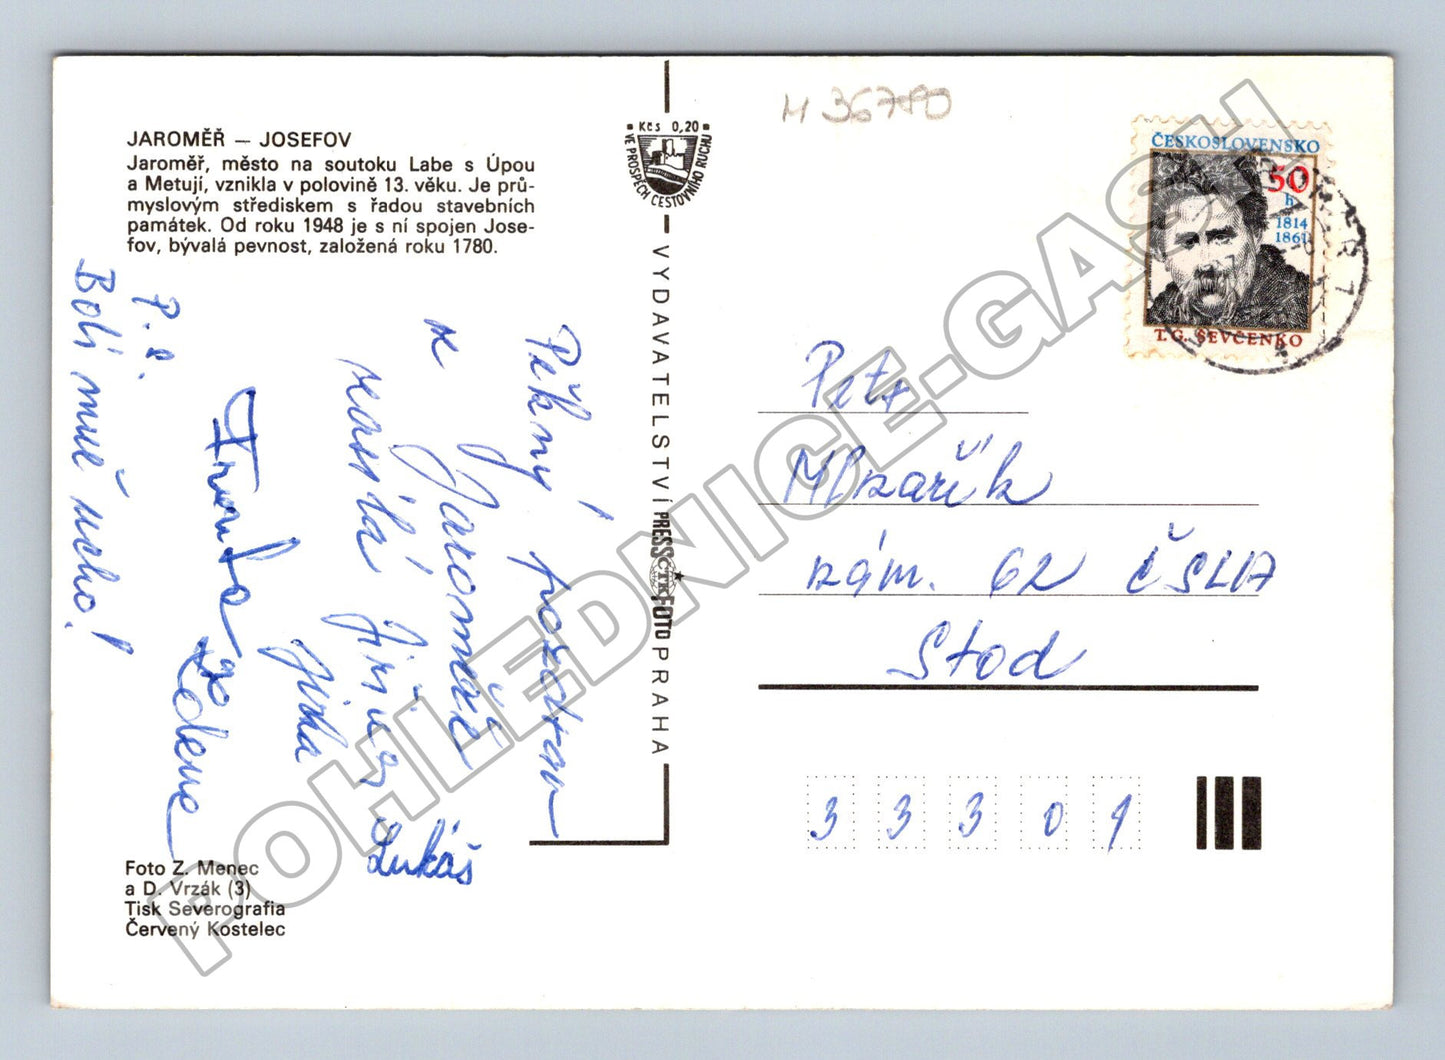 JAROMĚŘ — JOSEFOV
Jaroměř, město na soutoku Labe s Úpou
a Metují, vznikla v polovině 13. věku. Je prů-
myslovým střediskem s řadou stavebních
památek. Od roku 1948 je s ní spojen Jose-
fov, bývalá pevnost, založená roku 1780.
Pěkný pozdrav
z Jaroměře
zasílá Jirka
Lukáš
Zdena
P.S.
Bolí mně ucho!
Foto Z. Menec
a D. Vrzák (3)
Tisk Severografia
Červený Kostelec
Kčs 0,20
VE PROSPĚCH CESTOVNÍHO RUCHU
VYDAVATELSTVÍ PRESSFOTO PRAHA
ČTK
M 36780
ČESKOSLOVENSKO
50
h
1814
1861
T.G. ŠEVČENKO
Petr
Mlnařík
nám. 62 ČSLA
Stod
33301
POHLEDNICE-GASH